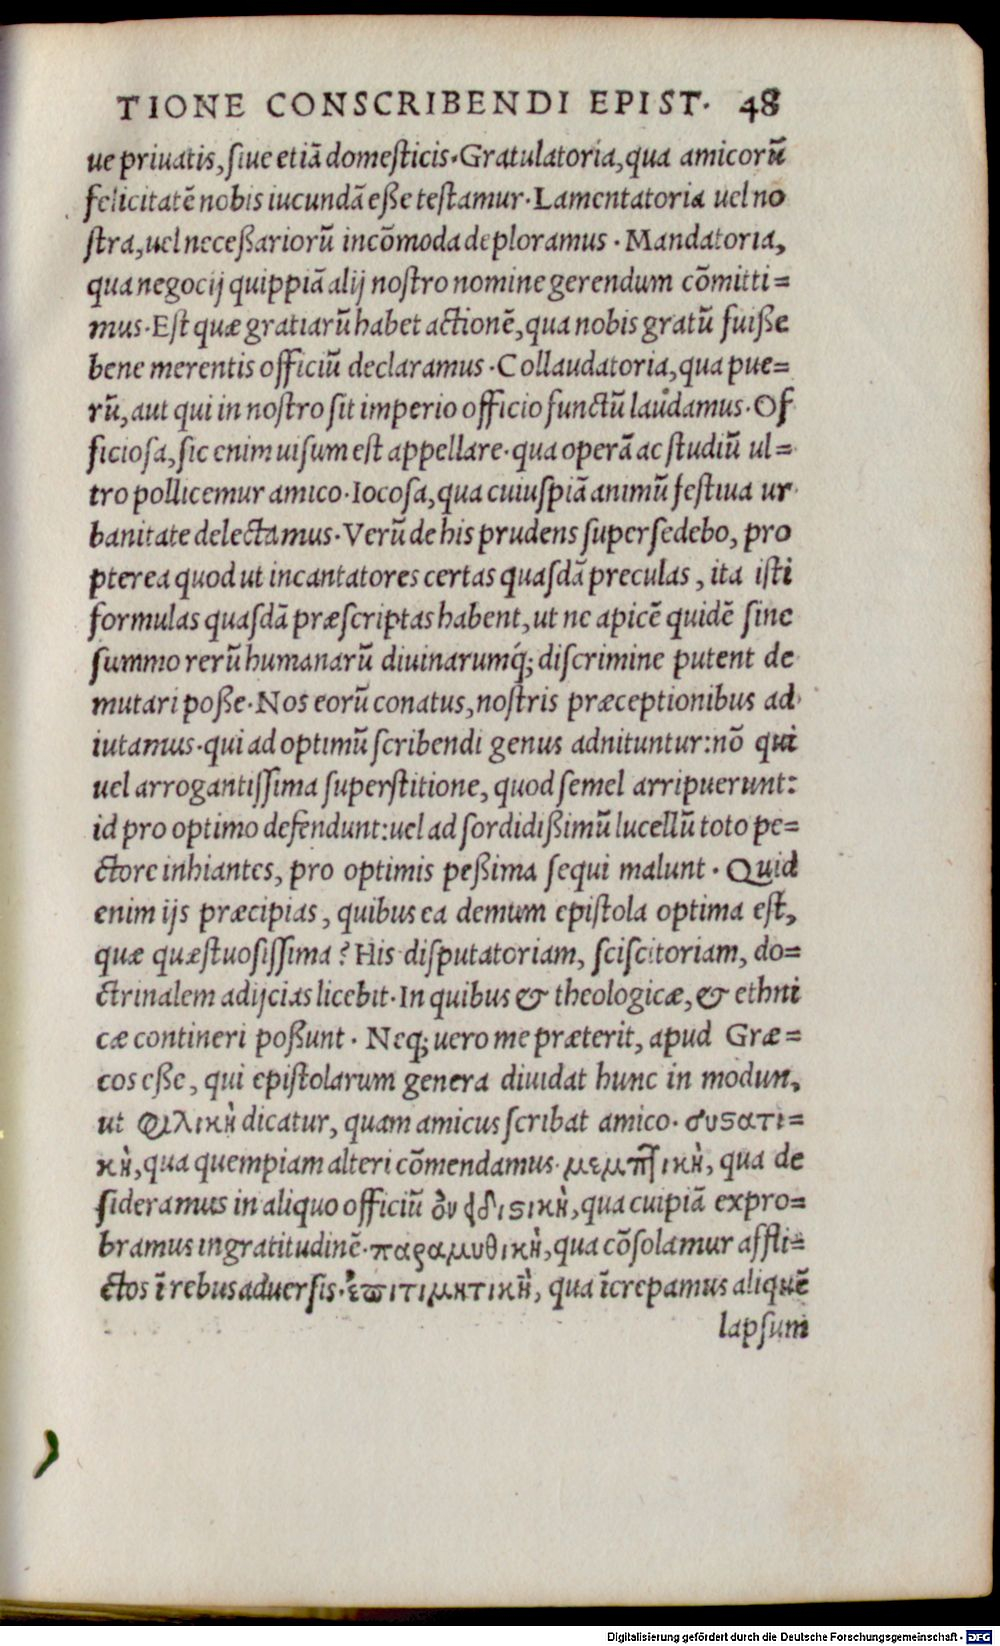 TIONE CONSCRIBENDI EPIST. 48
ue priuatis, ſiue etiã domeſticis. Gratulatoria, qua amicorũ
felicitatẽ nobis iucundã eße teſtamur. Lamentatoria uel no
ſtra, uel neceßariorũ incõmoda deploramus. Mandatoria,
qua negocij quippiã alij noſtro nomine gerendum cõmitti=
mus. Eſt quæ gratiarũ habet actionẽ, qua nobis gratũ fuiße
bene merentis officiũ declaramus. Collaudatoria, qua pue=
rũ, aut qui in noſtro ſit imperio officio functũ laudamus. Of
ficioſa, ſic enim uiſum eſt appellare. qua operã ac ſtudiũ ul=
tro pollicemur amico. Iocoſa, qua cuiuſpiã animũ feſtiua ur
banitate delectamus. Verũ de his prudens ſuperſedebo, pro
pterea quod ut incantatores certas quaſdã preculas, ita iſti
formulas quaſdã præſcriptas habent, ut ne apicẽ quidẽ ſine
ſummo rerũ humanarũ diuinarumq́; diſcrimine putent de
mutari poße. Nos eorũ conatus, noſtris præceptionibus ad
iutamus. qui ad optimũ ſcribendi genus adnituntur: nõ qui
uel arrogantiſſima ſuperſtitione, quod ſemel arripuerunt:
id pro optimo defendunt: uel ad ſordidißimũ lucellũ toto pe=
ctore inhiantes, pro optimis peßima ſequi malunt. Quid
enim ijs præcipias, quibus ea demum epiſtola optima eſt,
quæ quæſtuoſiſſima? His diſputatoriam, ſciſcitoriam, do=
ctrinalem adijcias licebit. In quibus & theologicæ, & ethni
cæ contineri poßunt. Neq; uero me præterit, apud Græ=
cos eße, qui epiſtolarum genera diuidat hunc in modun,
ut φιλικὴ dicatur, quam amicus ſcribat amico. συϛατι=
κὴ, qua quempiam alteri cõmendamus. μεμπτικὴ, qua de
ſideramus in aliquo officiũ ὀνειδιϛικὴ, qua cuipiã expro=
bramus ingratitudinẽ. παραμυθικὴ, qua cõſolamur affli=
ctos ĩ rebus aduerſis. ἐπιτιμητικὴ, qua ĩcrepamus aliquẽ
lapſum
Digitalisierung gefördert durch die Deutsche Forschungsgemeinschaft - DFG